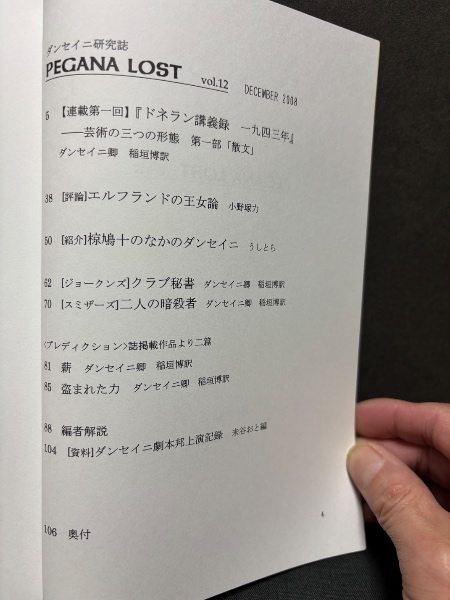 ダンセイニ研究誌
PEGANA LOST vol.12 DECEMBER 2008
5 【連載第一回】『ドネラン講義録 一九四三年』
――芸術の三つの形態 第一部「散文」
ダンセイニ卿 稲垣博訳
38 [評論]エルフランドの王女論 小野塚力
50 [紹介]椋鳩十のなかのダンセイニ うしとら
62 [ジョークンズ]クラブ秘書 ダンセイニ卿 稲垣博訳
70 [スミザーズ]二人の暗殺者 ダンセイニ卿 稲垣博訳
〈プレディクション〉誌掲載作品より二篇
81 薪 ダンセイニ卿 稲垣博訳
85 盗まれた力 ダンセイニ卿 稲垣博訳
88 編者解説
104 [資料]ダンセイニ劇本邦上演記録 未谷おと編
106 奥付
4